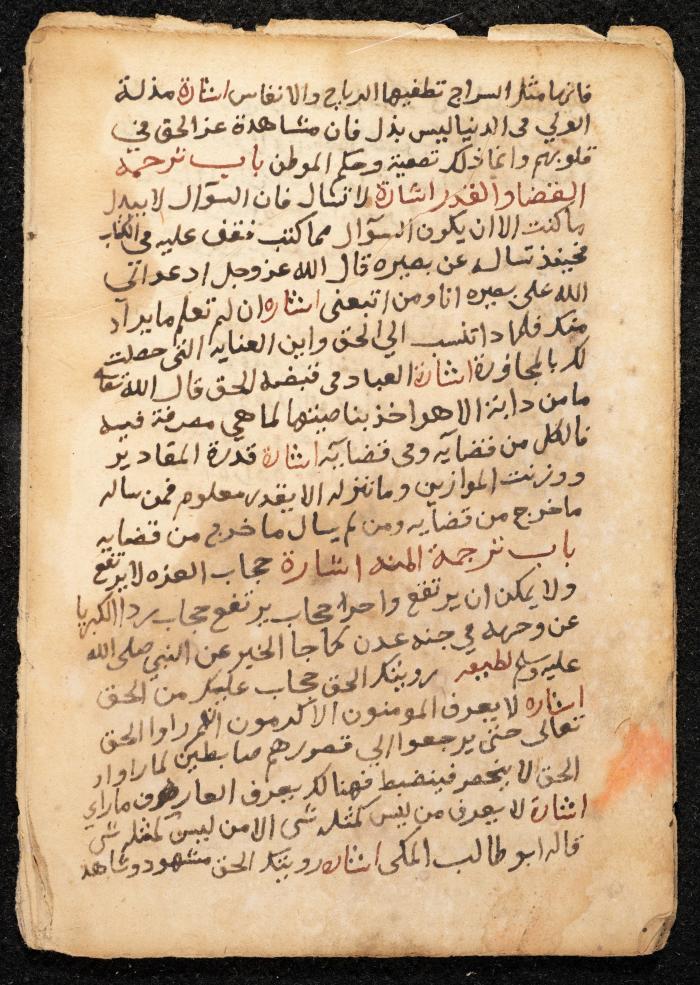 فانها مثل السراج تطفيها الرياح والانفاس اشارة مذلة
الولي في الدنيا ليس بذل فان مشاهدة عز الحق في
قلوبهم وانما ذلك تصفية وحكم الموطن باب ترجمة
القضا والقدر اشارة لا تسال فان السوال لا يبدل
ما كتب الا ان يكون السوال مما كتب فقف عليه في الكتاب
فحينئذ تسال عن بصيره قال الله عز وجل ادعوا الي
الله على بصيره انا ومن اتبعني اشاره ان لم تعلم ما يراد
منك فلماذا تنسب الي الحق واين العنايه التي حصلت
لك بالمجاورة اشارة العباد في قبضة الحق قال الله تعالى
ما من دابة الا هو اخذ بناصيتها لما هي مصرفة فيه
فالكل من قضايه وفي قضايه اشارة قدرة المقادير
ووزنت الموازين وما ننزله الا بقدر معلوم فمن ساله
ما خرج من قضايه ومن لم يسال ما خرج من قضايه
باب ترجمة المنه اشارة حجاب العزه لا يرتفع
ولا يمكن ان يرتفع واخرا حجاب يرتفع حجاب ردا الكبريا
عن وجهه في جنه عدن كما جا الخبر عن النبي صلى الله
عليه وسلم لطيفه رويتك الحق حجاب عليك من الحق
اشاره لا يعرف المومنون الاكرمون انهم راوا الحق
تعالى حتى يرجعوا الي قصورهم ضابطين لما راوا و
الحق لا ينحصر فينضبط فهنالك يعرف العارف ما راي
اشارة لا يعرف من ليس كمثله شي الا من ليس كمثله شي
قاله ابو طالب المكي اشاره رويتك الحق مشهود وشاهد